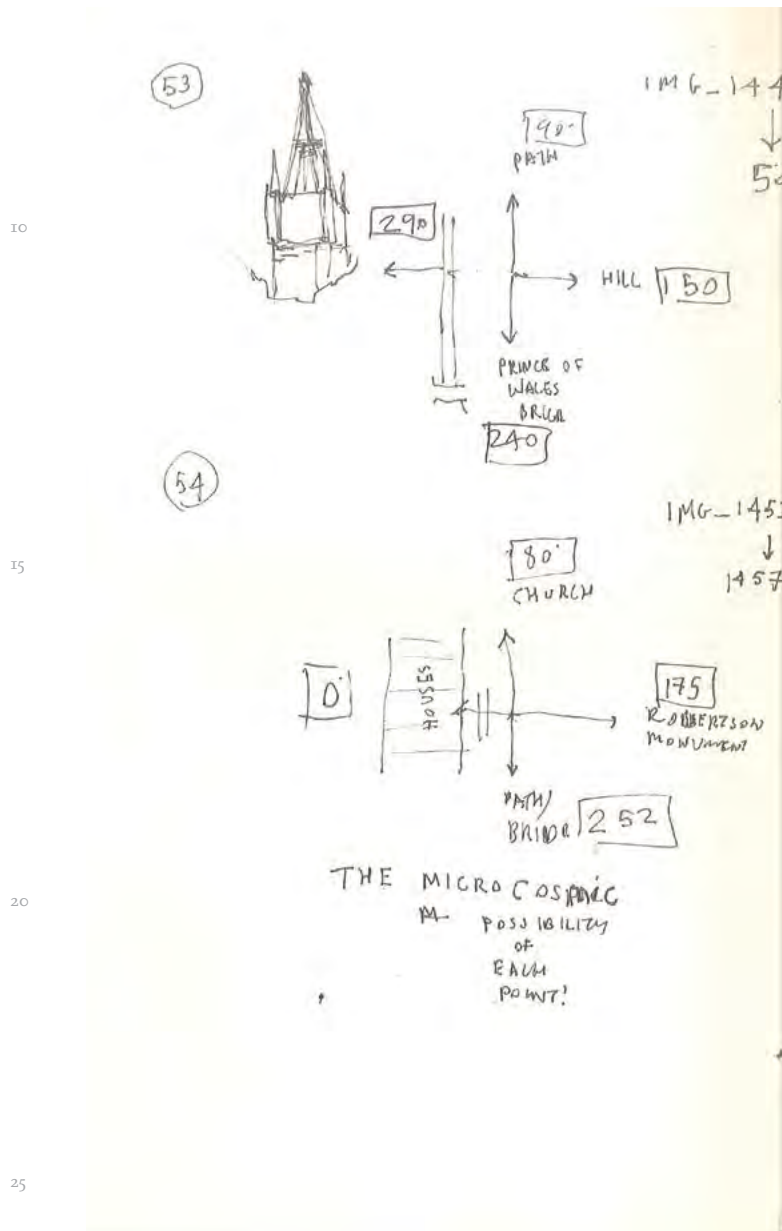 53
IMG_144
190°
PATH
10
290
HILL 150
PRINCE OF
WALES
240
54
IMG_145
15
80°
CHURCH
1457
0°
HOUSES
175
ROBBERTSON
MONUMENT
PATH/
252
THE MICROCOSMIC
20
POSSIBILITY
OF
EACH
POINT!
25